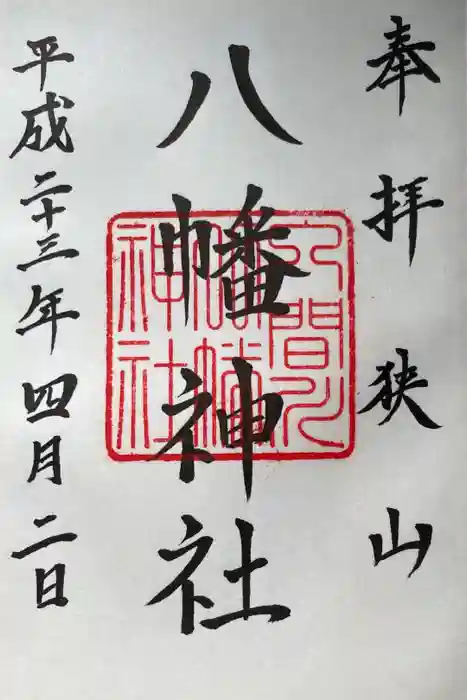 奉拝 狭山
八幡神社
平成二十三年四月二日
入間川
八幡
神社